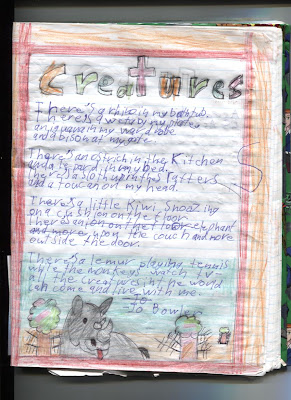 Creatures
There's a rhino in my bathtub.
There's a wasp by my plate
an iguana in my wardrobe
and a bison at my gate
There's an ostrich in the Kitchen
and a in my bed.
There's a sloth in the
and a toucan on my head.
There's a little Kiwi snoozing
on a cushion on the floor.
There's a on the elephant
and more upon the couch and more
outside the door.
There's a lemur playing tennis
while the monkeys watch tv
all the creatures in the world
can come and live with me.
Jo Bowler